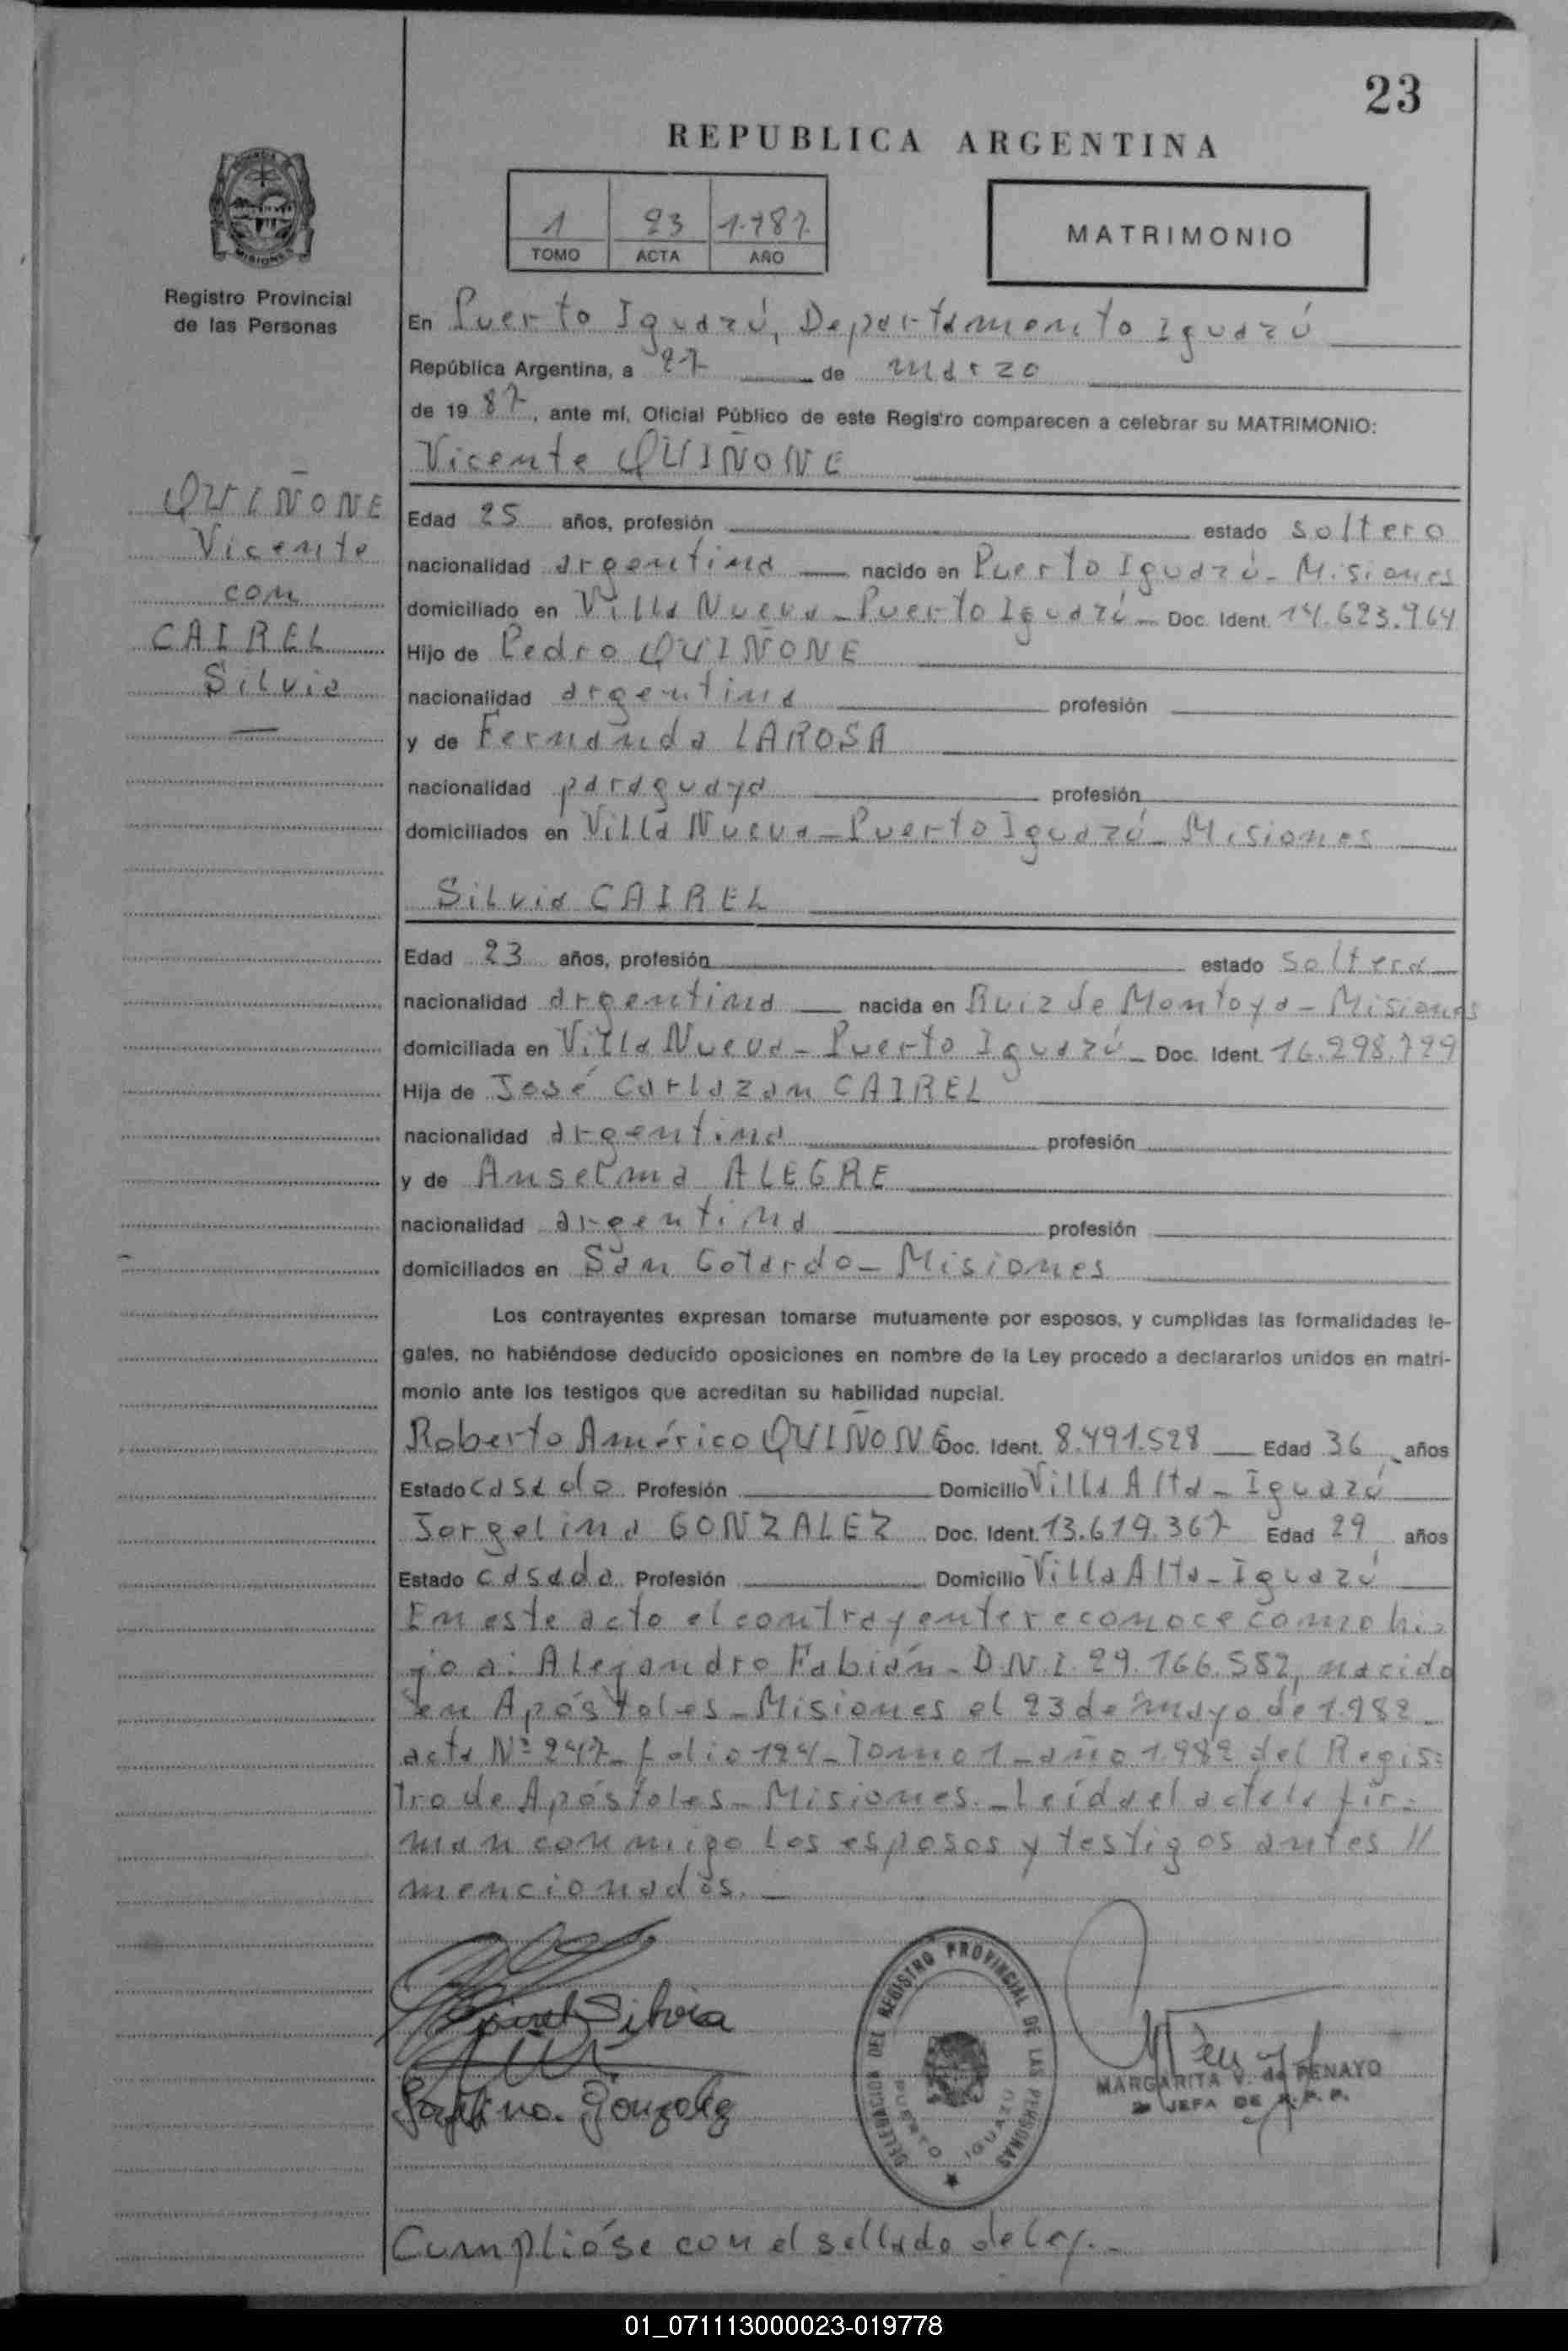 23
REPUBLICA ARGENTINA
1 23 1.987
TOMO ACTA AÑO
MATRIMONIO
MISIONES
Registro Provincial
de las Personas
En Puerto Iguazú, Departamento Iguazú
República Argentina, a 27 de marzo
de 19 87, ante mí, Oficial Público de este Registro comparecen a celebrar su MATRIMONIO:
Vicente QUIÑONE
QUIÑONE
Vicente
con
CAIREL
Silvia
Edad 25 años, profesión estado soltero
nacionalidad argentina nacido en Puerto Iguazú - Misiones
domiciliado en Villa Nueva - Puerto Iguazú - Doc. Ident. 14.623.964
Hijo de Pedro QUIÑONE
nacionalidad argentina profesión
y de Fernanda LAROSA
nacionalidad paraguaya profesión
domiciliados en Villa Nueva - Puerto Iguazú - Misiones
Silvia CAIREL
Edad 23 años, profesión estado soltera
nacionalidad argentina nacida en Ruiz de Montoya - Misiones
domiciliada en Villa Nueva - Puerto Iguazú - Doc. Ident. 16.298.799
Hija de José Carlazan CAIREL
nacionalidad argentina profesión
y de Anselma ALEGRE
nacionalidad argentina profesión
domiciliados en San Gotardo - Misiones
Los contrayentes expresan tomarse mutuamente por esposos, y cumplidas las formalidades le-
gales, no habiéndose deducido oposiciones en nombre de la Ley procedo a declararlos unidos en matri-
monio ante los testigos que acreditan su habilidad nupcial.
Roberto Américo QUIÑONE Doc. Ident. 8.491.528 Edad 36 años
Estado casado Profesión Domicilio Villa Alta - Iguazú
Jorgelina GONZALEZ Doc. Ident. 13.619.367 Edad 29 años
Estado casada Profesión Domicilio Villa Alta - Iguazú
En este acto el contrayente reconoce como hi-
jo a: Alejandro Fabián - D.N.I. 29.166.582, nacido
en Apóstoles - Misiones el 23 de mayo de 1.982 -
acta Nº 247 - folio 124 - Tomo 1 - año 1.982 del Regis=
tro de Apóstoles - Misiones. - Leída el acta la fir-
man conmigo los esposos y testigos antes //
mencionados. -
Cairel Silvia
Gonzalez
DELEGACION DEL REGISTRO PROVINCIAL DE LAS PERSONAS
PUERTO IGUAZU
MARGARITA V. de PENAYO
JEFA DE R. P. P.
Cumplióse con el sellado de ley. -
01_071113000023-019778